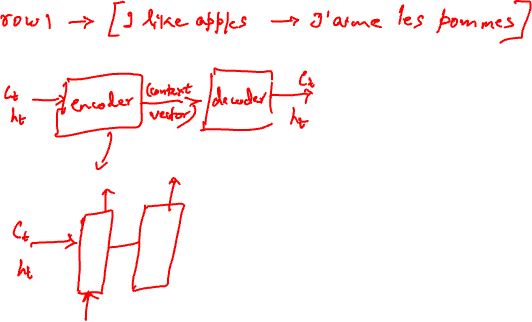 row 1 → [ I like apples → J'aime les pommes ]
Ct
ht
encoder
(context
vector)
decoder
Ct
ht
Ct
ht